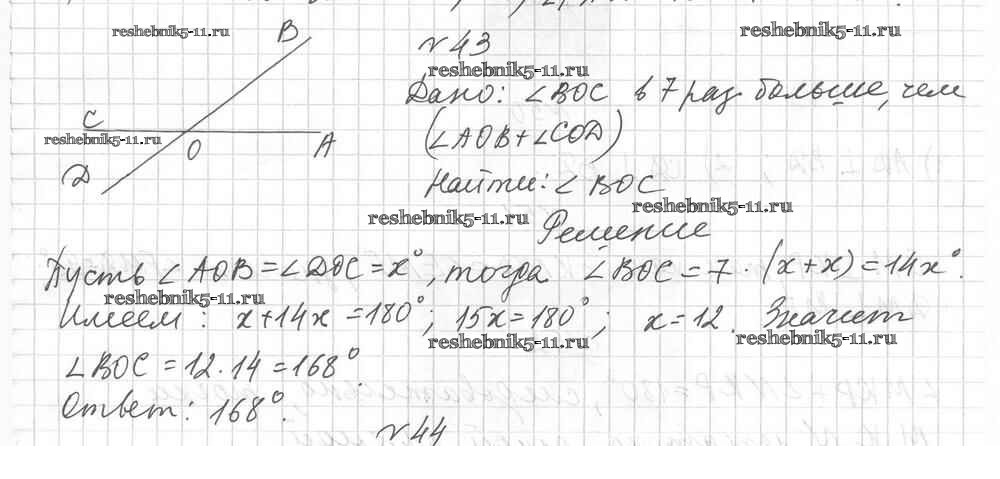 reshebnik5-11.ru
B
№43
reshebnik5-11.ru
reshebnik5-11.ru
Дано: ∠BOC в 7 раз больше, чем
C
reshebnik5-11.ru
O
A
(∠AOB+∠COD)
D
Найти: ∠BOC
reshebnik5-11.ru
reshebnik5-11.ru
Решение
Пусть ∠AOB=∠DOC=x°, тогда ∠BOC=7·(x+x)=14x°.
reshebnik5-11.ru
Имеем: x+14x=180°; 15x=180°; x=12. Значит
reshebnik5-11.ru
reshebnik5-11.ru
∠BOC=12·14=168°.
Ответ: 168°.
№44